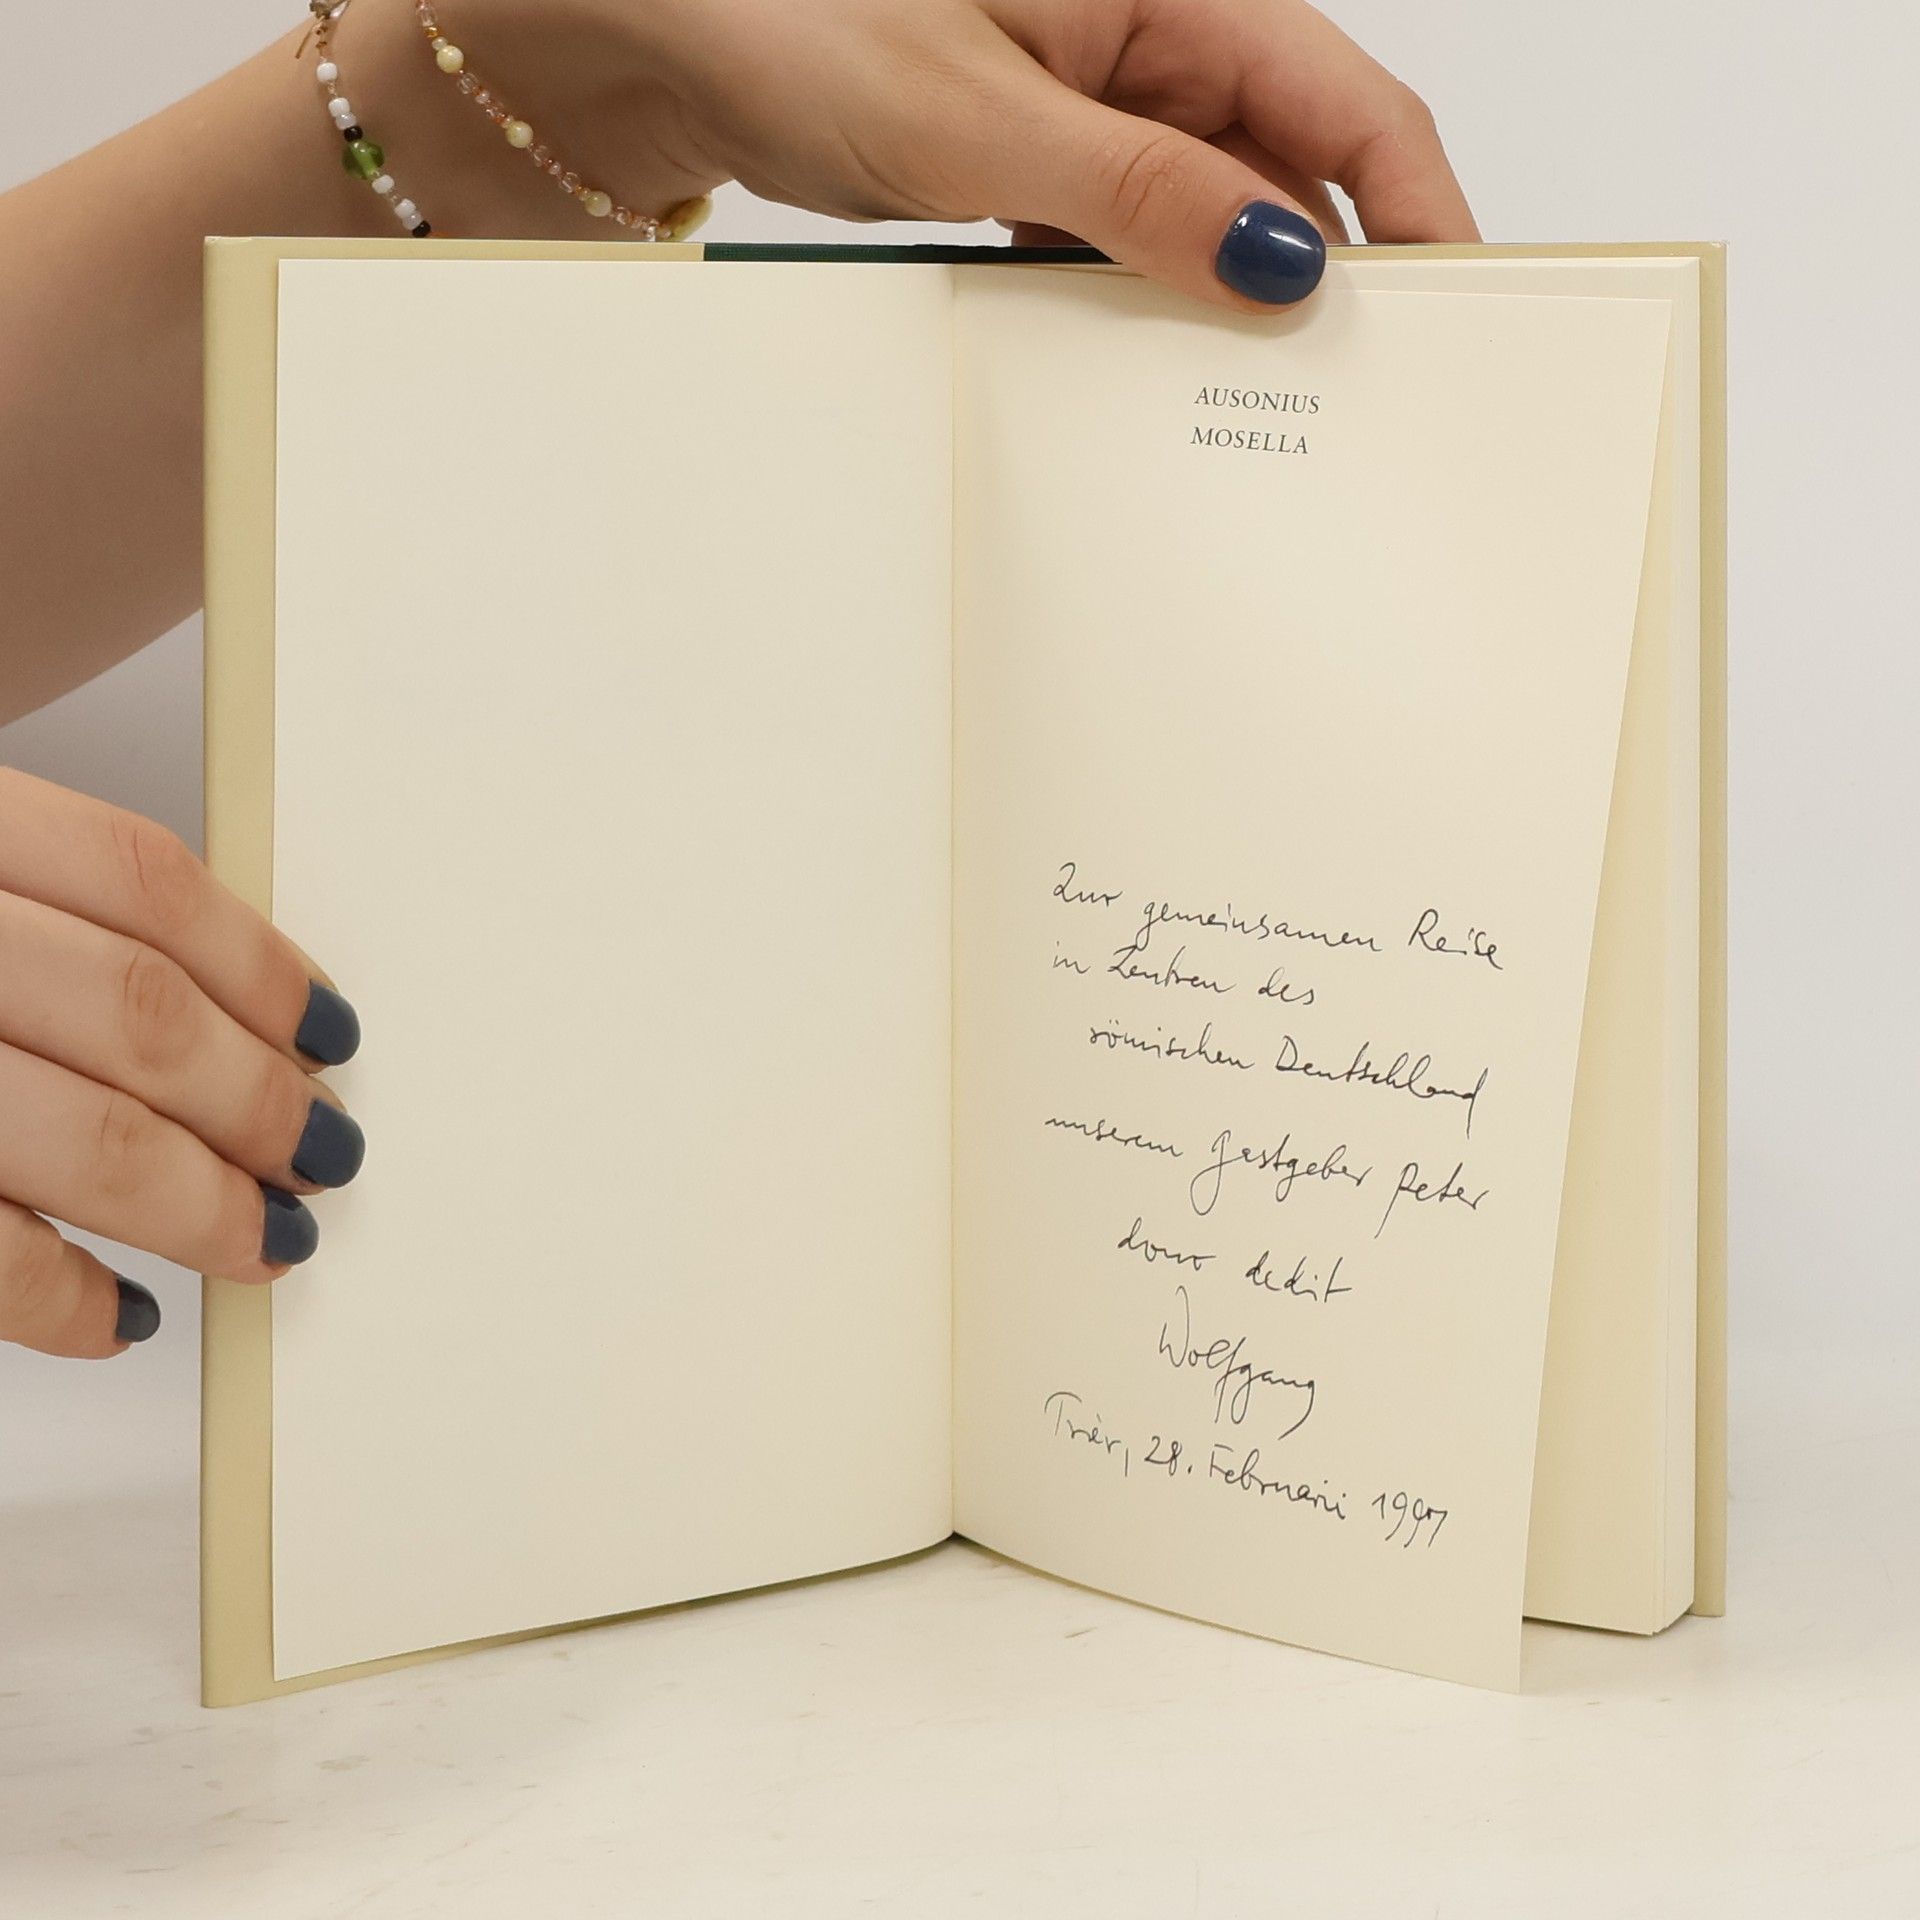 AUSONIUS
MOSELLA
Zur gemeinsamen Reise
in Zentren des
römischen Deutschland
unserem Gastgeber Peter
dono dedit
Wolfgang
Trier, 28. Februarii 1997